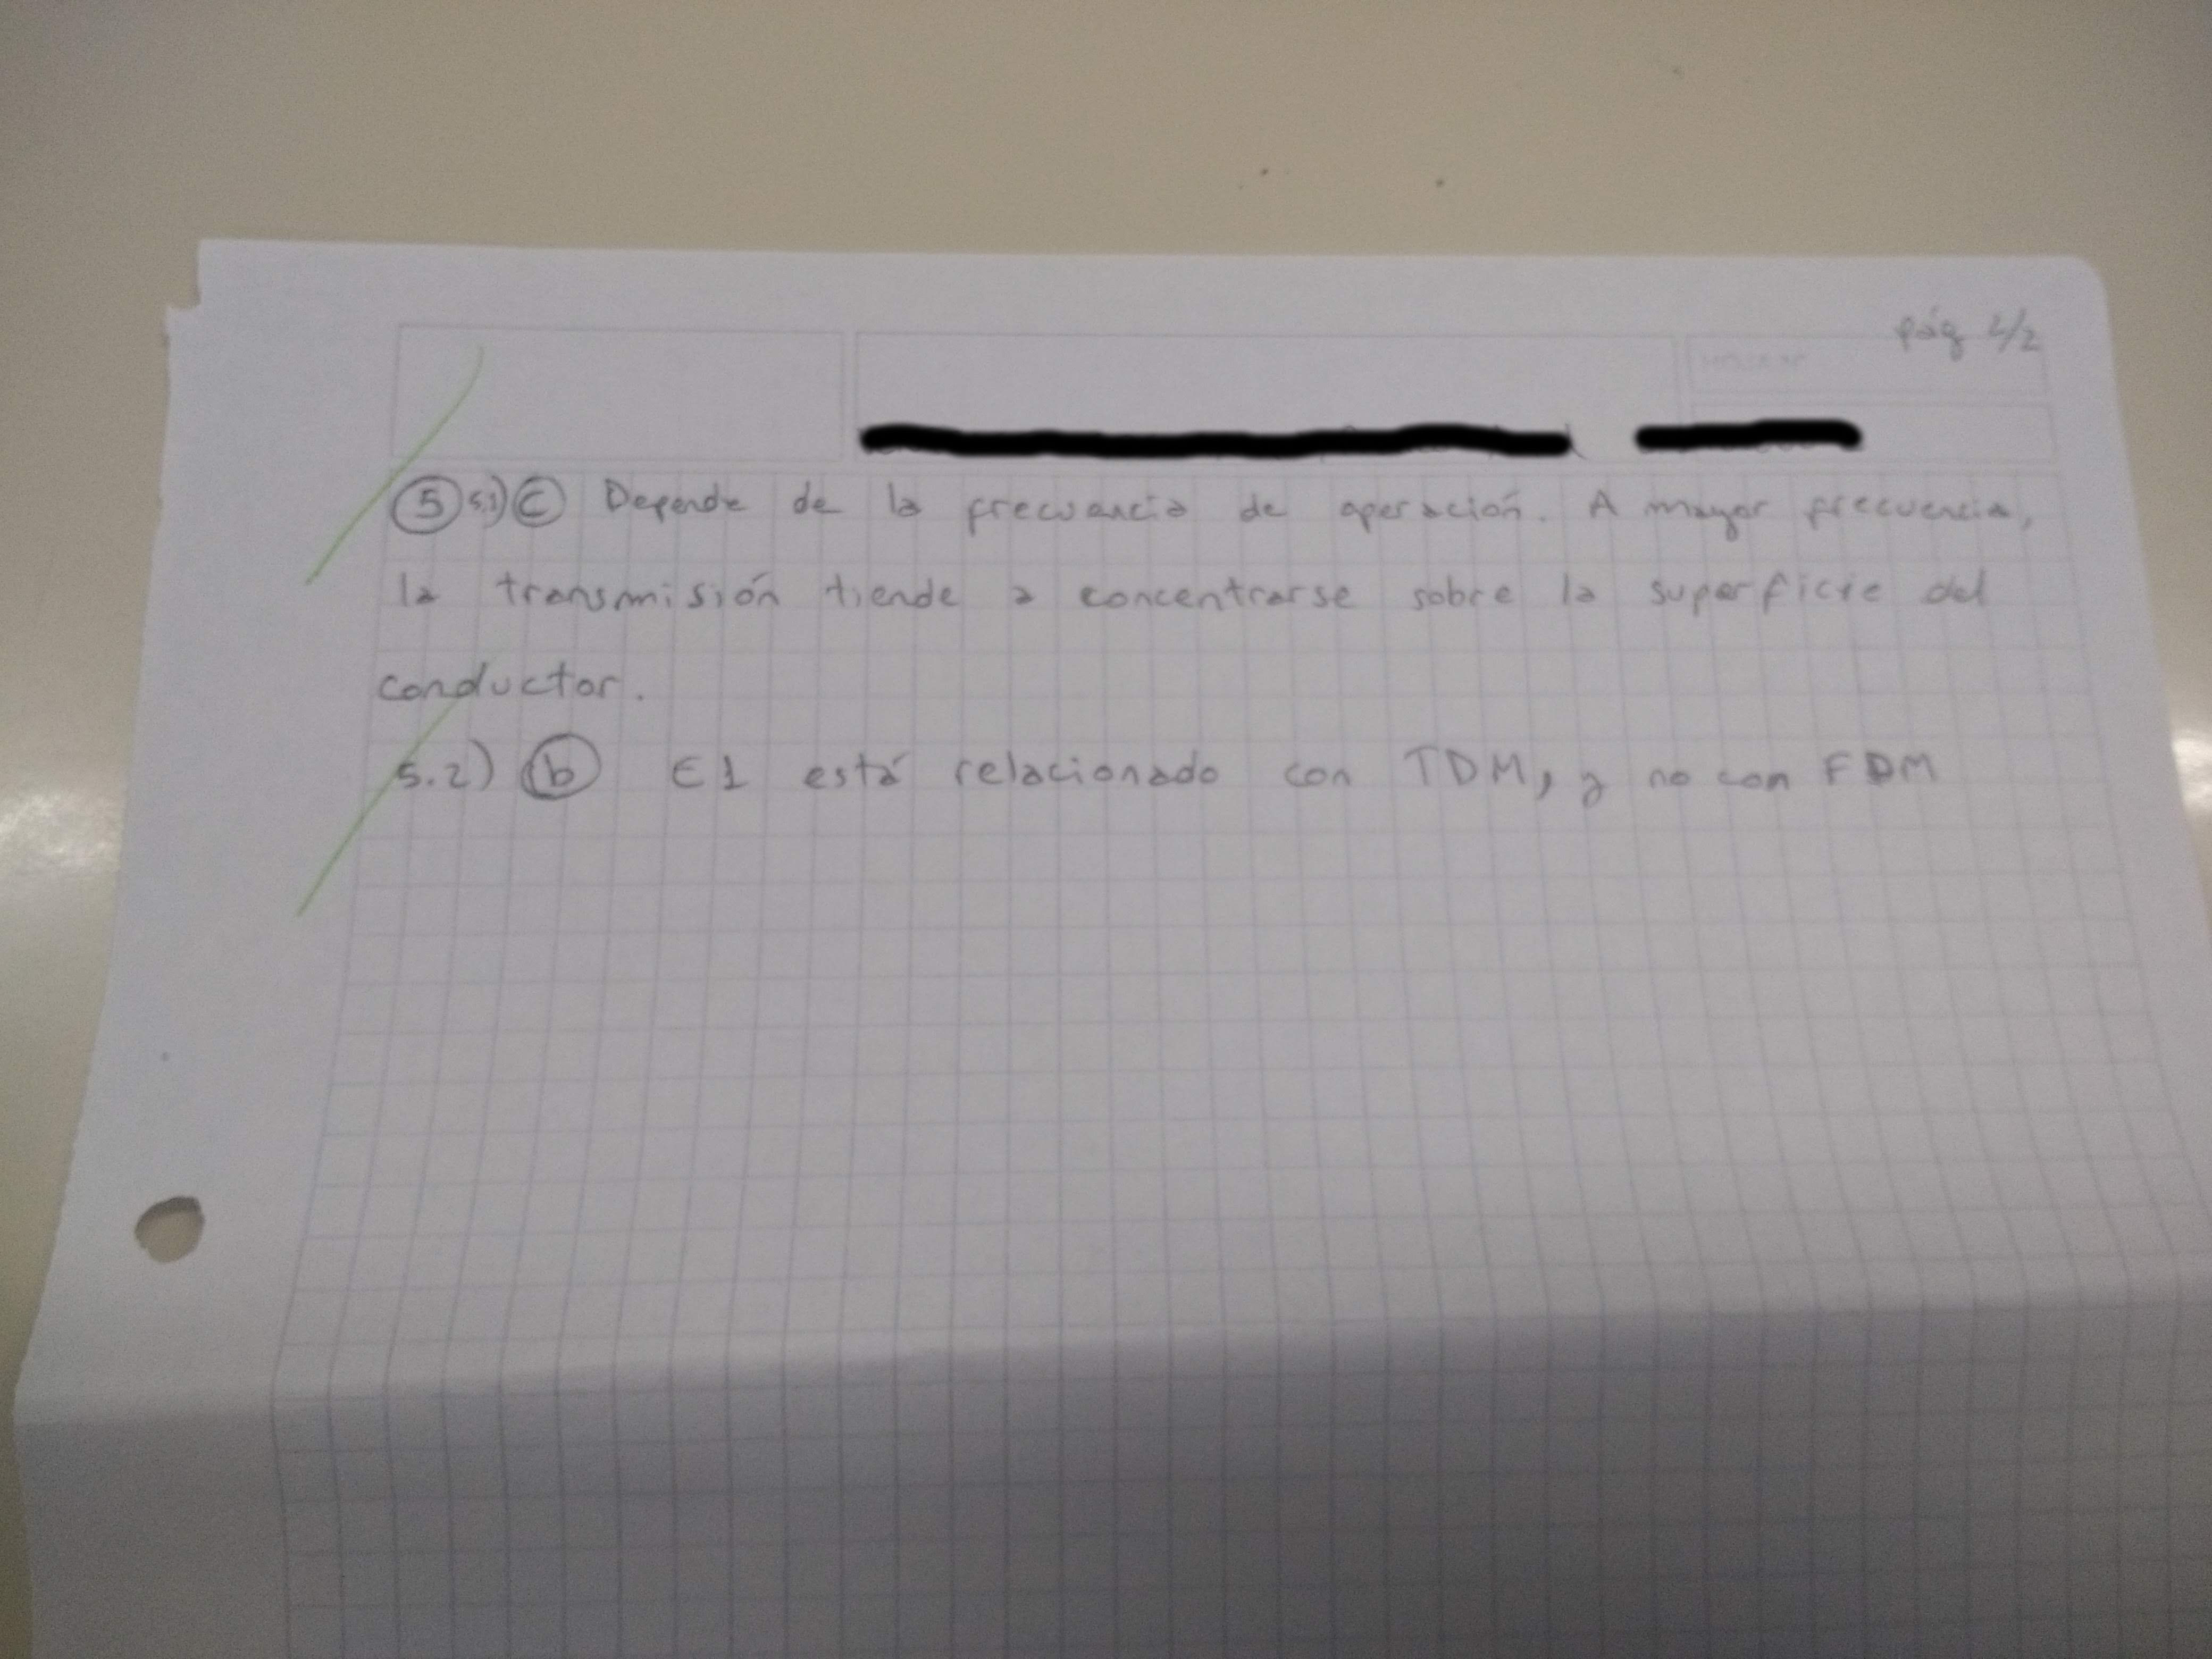 pág 2/2
5 5.1) C Depende de la frecuencia de operación. A mayor frecuencia,
la transmisión tiende a concentrarse sobre la superficie del
conductor.
5.2) b E1 está relacionado con TDM, y no con FDM